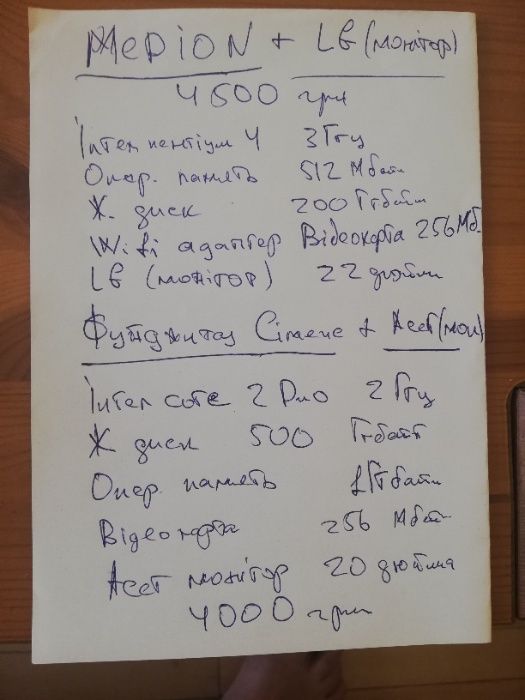 MEDION + LG (монітор)
4500 грн
Інтел пентіум 4 3 Ггц
Опер. память 512 Мбайт
Ж. диск 200 Ггбайт
Wifi адаптер Відеокарта 256 Мб.
LG (монітор) 22 дюйми
Фуйджитзу Сіменс + Acer (мон)
Інтел core 2 Duo 2 Ггц
Ж диск 500 Ггбайт
Опер. память 1 Ггбайт
Відеокарта 256 Мбайт
Acer монітор 20 дюйма
4000 грн